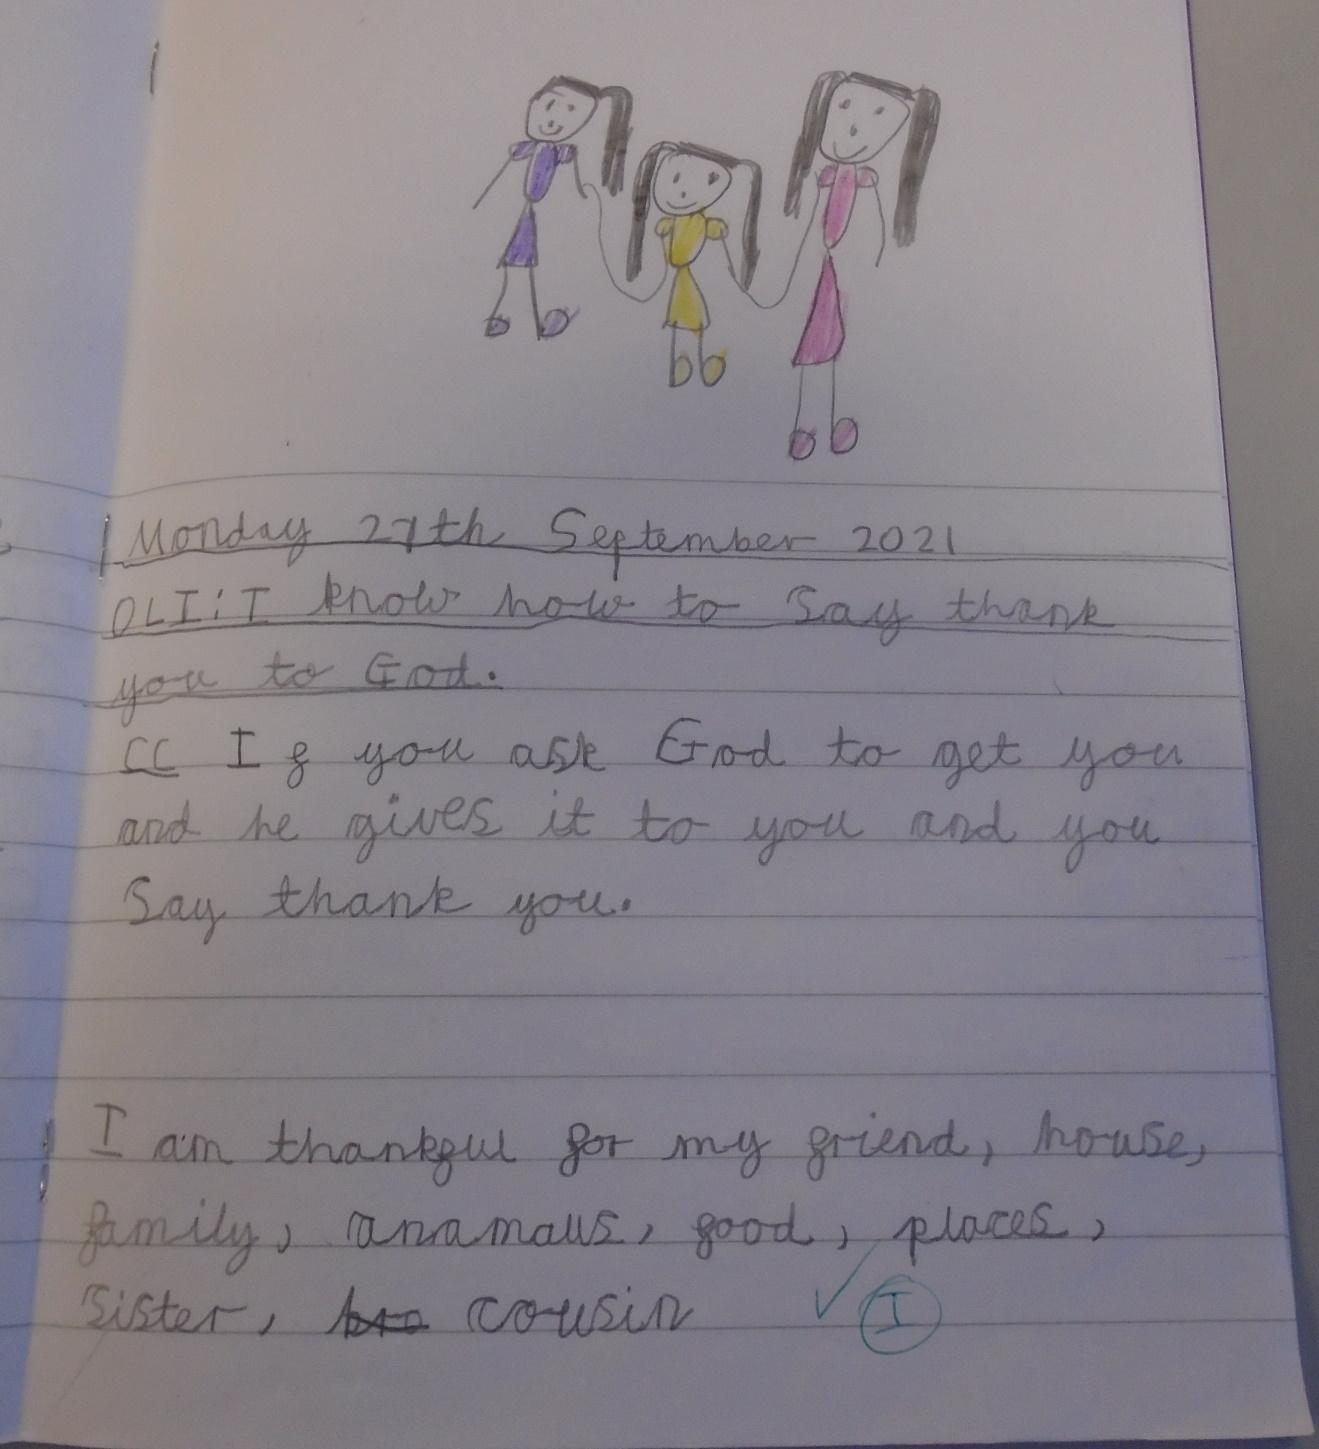 Monday 27th September 2021
OLI: I know how to Say thank
you to God.
CC If you ask God to get you
and he gives it to you and you
Say thank you.
I am thankful for my friend, house,
family, anamalls, food, places,
Sister, cousin
I